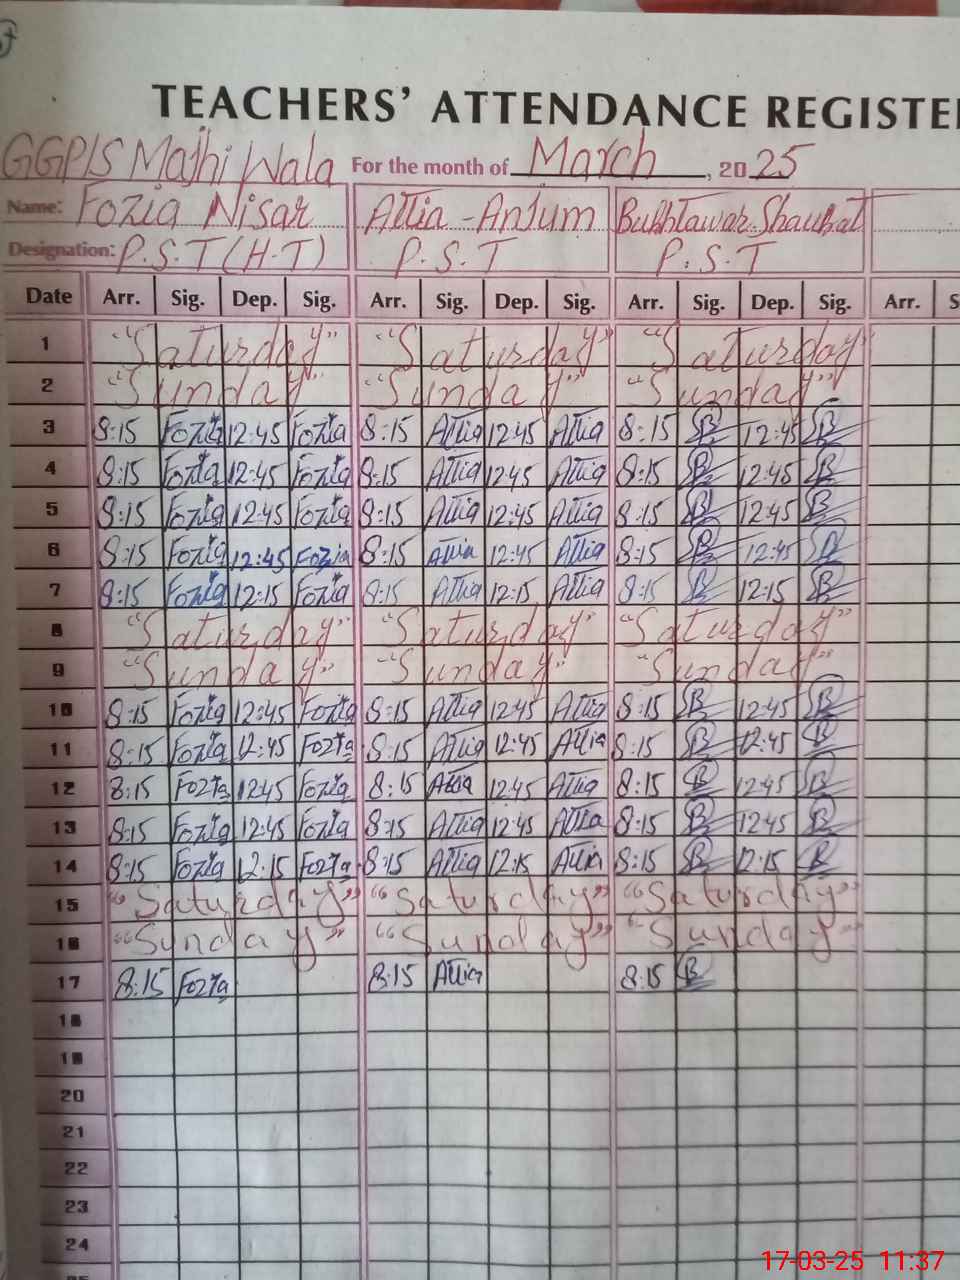 TEACHERS' ATTENDANCE REGISTE
GGP/S Majhi Wala For the month of March, 2025
Name: Fozia Nisar Attia-Anjum Bukhtawar Shaukat
Designation: P.S.T (H.T) P.S.T P.S.T
Date Arr. Sig. Dep. Sig. Arr. Sig. Dep. Sig. Arr. Sig. Dep. Sig. Arr. S
1 "Saturday" "Saturday" "Saturday"
2 "Sunday" "Sunday" "Sunday"
3 8:15 Fozia 12:45 Fozia 8:15 Attia 12:45 Attia 8:15 B 12:45 B
4 8:15 Fozia 12:45 Fozia 8:15 Attia 12:45 Attia 8:15 B 12:45 B
5 8:15 Fozia 12:45 Fozia 8:15 Attia 12:45 Attia 8:15 B 12:45 B
6 8:15 Fozia 12:45 Fozia 8:15 Attia 12:45 Attia 8:15 B 12:45 B
7 8:15 Fozia 12:15 Fozia 8:15 Attia 12:15 Attia 8:15 B 12:15 B
8 "Saturday" "Saturday" "Saturday"
9 "Sunday" "Sunday" "Sunday"
10 8:15 Fozia 12:45 Fozia 8:15 Attia 12:45 Attia 8:15 B 12:45 B
11 8:15 Fozia 12:45 Fozia 8:15 Attia 12:45 Attia 8:15 B 12:45 B
12 8:15 Fozia 12:45 Fozia 8:15 Attia 12:45 Attia 8:15 B 12:45 B
13 8:15 Fozia 12:45 Fozia 8:15 Attia 12:45 Attia 8:15 B 12:45 B
14 8:15 Fozia 12:15 Fozia 8:15 Attia 12:15 Attia 8:15 B 12:15 B
15 "Saturday" "Saturday" "Saturday"
16 "Sunday" "Sunday" "Sunday"
17 8:15 Fozia 8:15 Attia 8:15 B
18
19
20
21
22
23
24
17-03-25 11:37